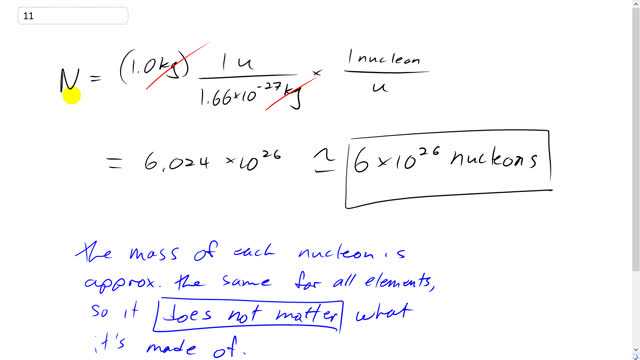 11
N = (1.0kg) 1 u / 1.66×10⁻²⁷ kg × 1 nucleon / u
= 6.024 ×10²⁶ ≃ 6×10²⁶ nucleons
the mass of each nucleon is
approx. the same for all elements,
so it does not matter what
it's made of.